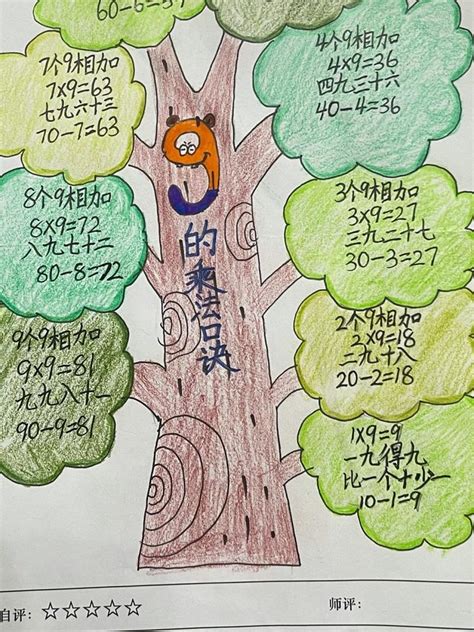 60-6=5
7个9相加
7×9=63
七九六十三
70-7=63
4个9相加
4×9=36
四九三十六
40-4=36
9的乘法口诀
8个9相加
8×9=72
八九七十二
80-8=72
3个9相加
3×9=27
三九二十七
30-3=27
9个9相加
9×9=81
九九八十一
90-9=81
2个9相加
2×9=18
二九十八
20-2=18
1×9=9
一九得九
比一个十少一
10-1=9
自评：☆☆☆☆☆
师评：